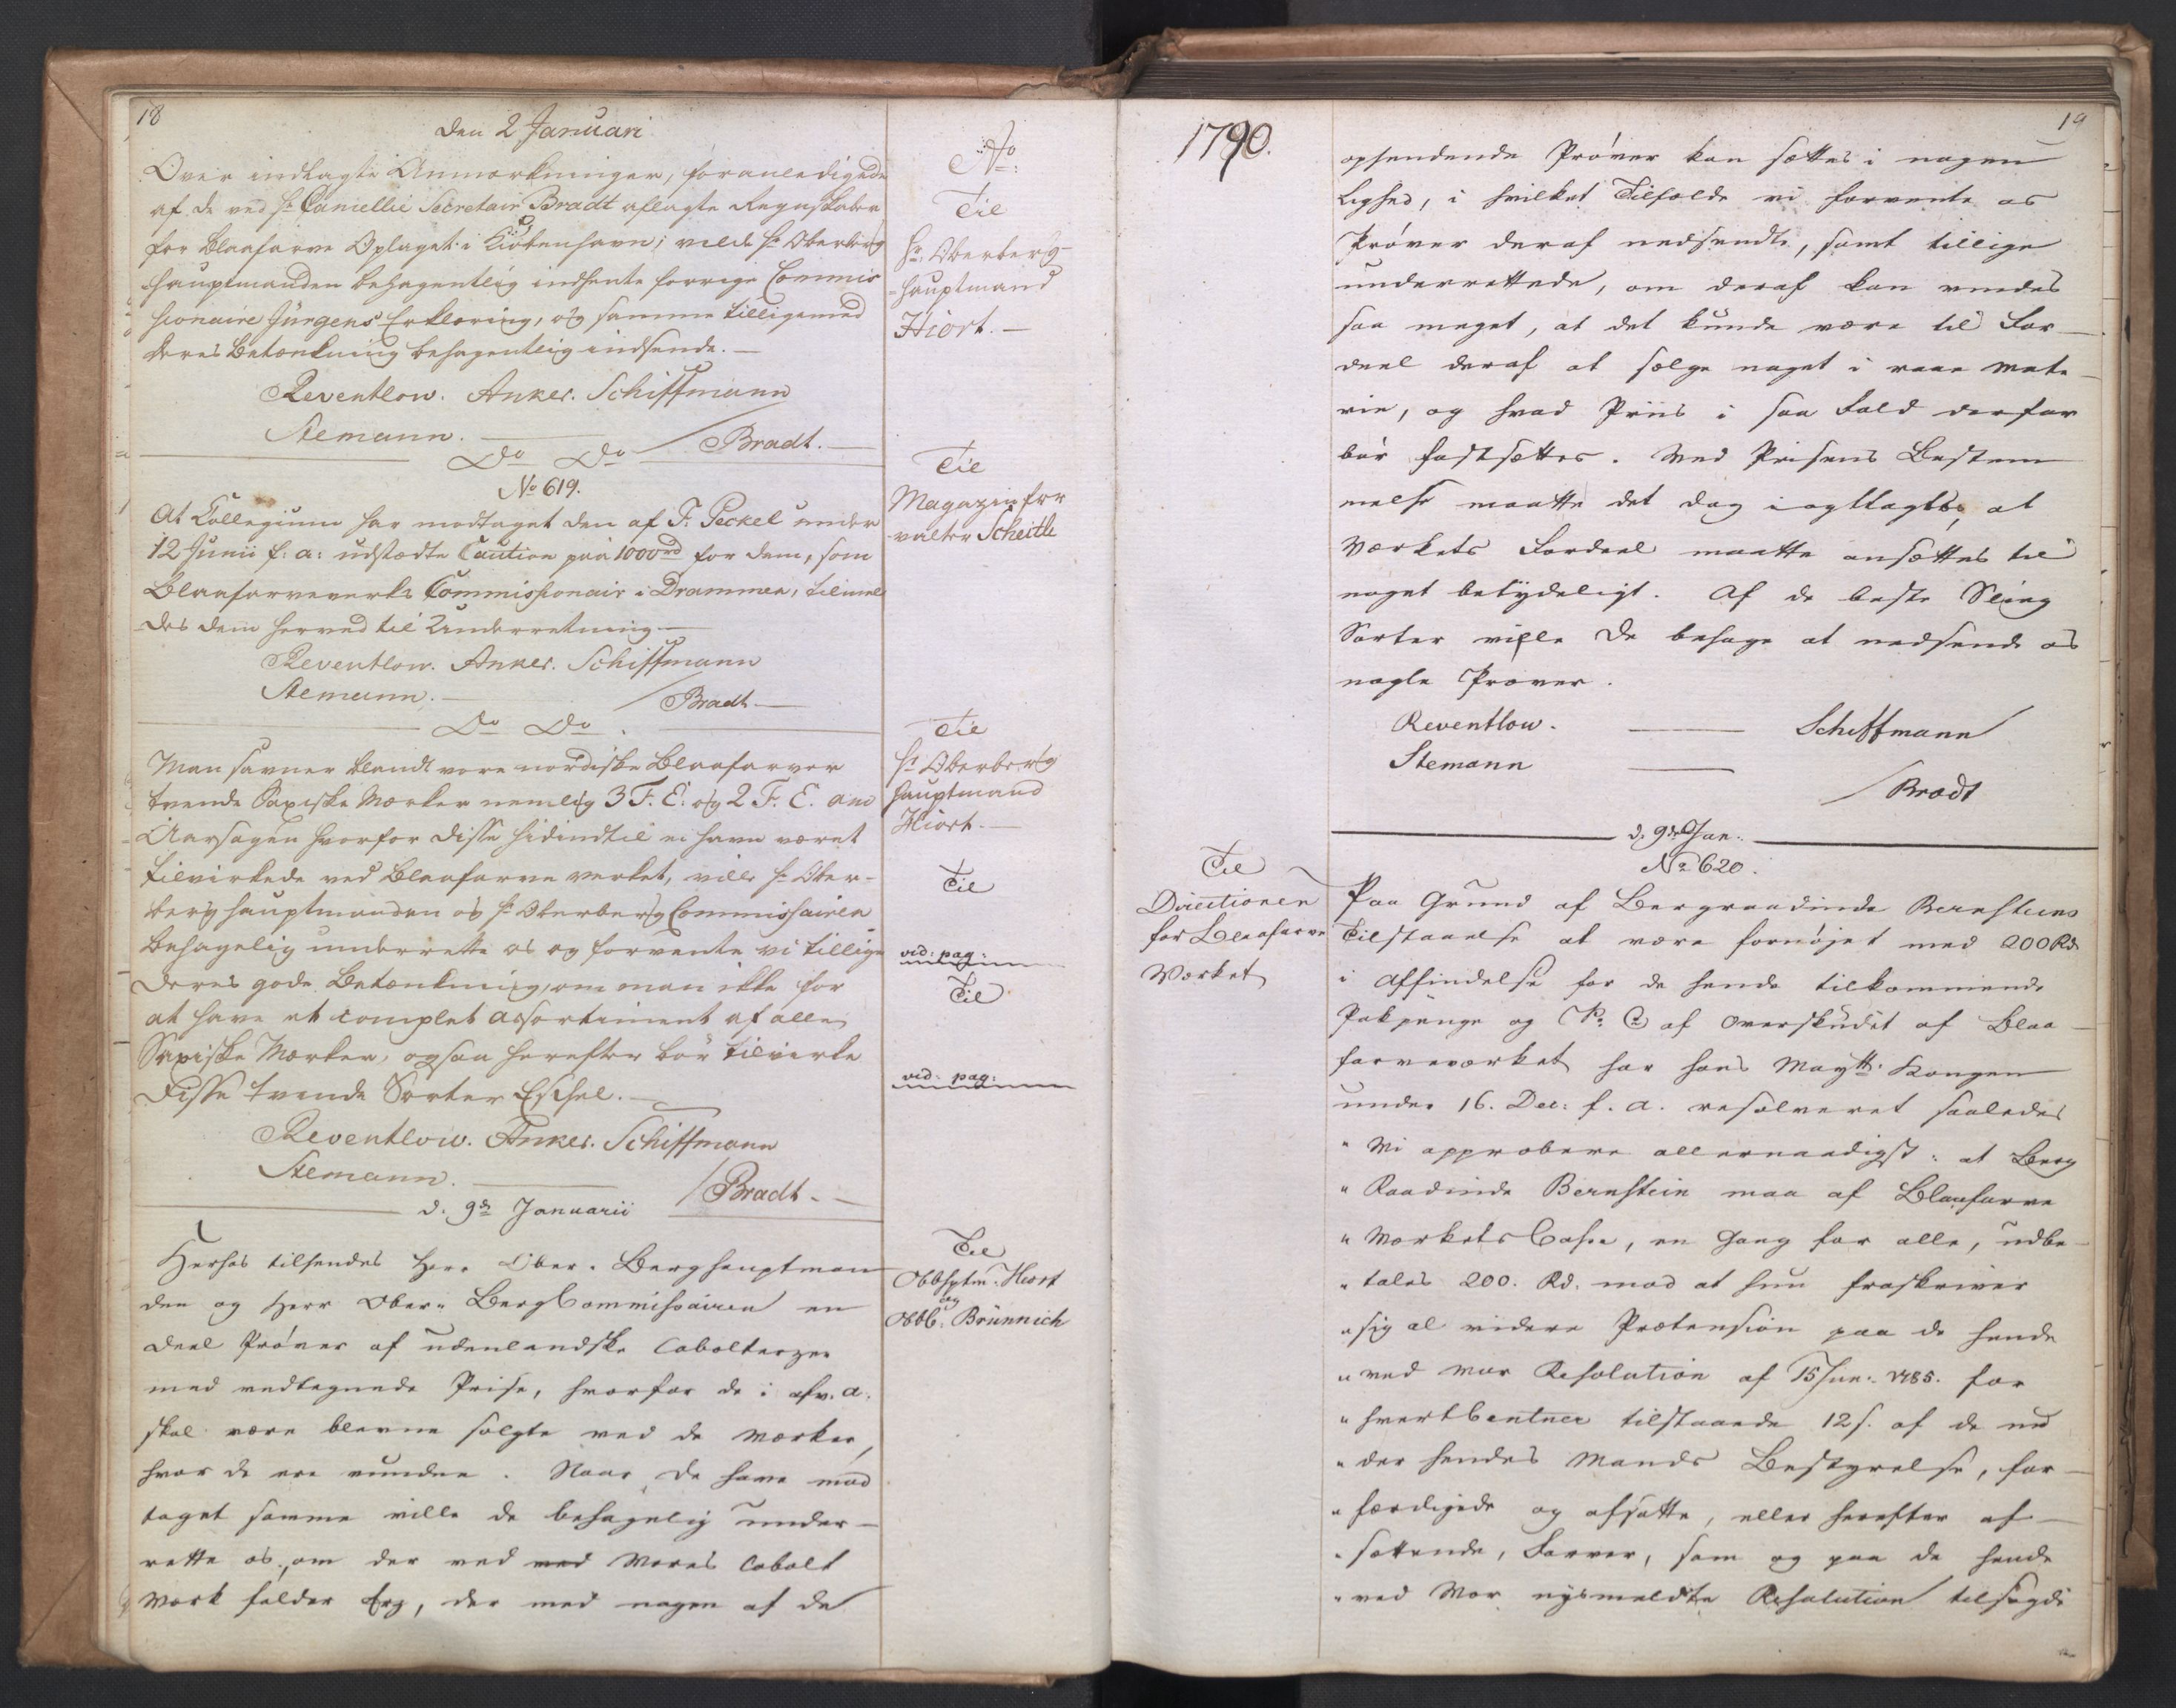 18
Den 2 Januari
Over indtagte Anmærkninger, foranledigede
af de ved Hr Camellie Secretair Bradt aflagte Regnskaber
for Blaafarve Oplaget i Kiøbenhavn; vilde Hr Oberberg
Hauptmanden behagentlig indhente forrige Commis
sionaire Jürgens Erklæring, og samme tilligemed
deres Betænkning behagentlig indsende. —
Reventlow. Anker. Schiffmann
Stemann. — / Bradt. —
Do Do
No 619.
At Collegium har modtaget den af F. Peckel under
12 Junii f: a: udstædte Caution paa 1000 rd for dem, som
Blaafarveverks Commissionair i Drammen, tilmel
des dem herved til Underretning. —
Reventlow. Anker. Schiffmann
Stemann. — / Bradt —
Do Do.
Man savner blandt vore nordiske Blaafarver
tvende Saxiske Mærker nemlig 3 F. E. og 2 F. E. om
Aarsagen hvorfor disse hidindtil ei have været
tilvirkede ved Blaafarve verket, ville Hr Ober-
berghauptmanden og Hr Oberberg Commissairen
behagelig underrette os og forvente vi tillige
deres gode Betænkning, om man ikke for
at have et complet assortiment af alle
Saxiske Mærker, ogsaa herefter bør tilvirke
disse tvende Sorter Eschel. —
Reventlow. Anker. Schiffmann
Stemann. — / Bradt. —
d. 9de Januarii
Herhos tilsendes Herr Ober- Berghauptman
den og Herr Ober- BergCommissairen en
deel Prøver af udenlandske Cobolterzer
med vedtegnede Prise, hvorfor de i afv. a.
skal være blevne solgte ved de Værker,
hvor de ere vundne. Naar De have mod
taget samme ville De behagelig under-
rette os, om der ved ved Vores Cobolt
Værk falder Erz, der med nogen af de
No:
Til
Hr: Oberberg-
-hauptmand
Hiort. —
Til
Magazinfor
valter Scheitle
Til
Hr Oberberg
hauptmand
Hiort. —
Til
vid: pag:
Til
vid: pag:
Til
Obbhptm: Hiort
og
ObbC: Brünnich
1790.
19
opsendende Prøver kan sættes i nogen
Lighed, i hvilket Tilfælde vi forvente os
Prøver deraf nedsendte, samt tillige
underrettede, om deraf kan vindes
saa meget, at det kunde være til For-
deel deraf at sælge noget i raae Mate-
rie, og hvad Priis i saa Fald derfor
bør fastsættes. Ved Prisens Bestem
melse maatte det dog iagttages, at
Værkets Fordeel maatte ansættes til
noget betydeligt. Af de beste Slieg
Sorter ville De behage at nedsende os
nogle Prøver.
Reventlow. — Schiffmann
Stemann — / Bradt
d. 9de Jan:
No 620.
Til
Directionen
for Blaafarve
Værket
Paa Grund af Bergraadinde Bernsteins
Tilstaaelse at være fornøjet med 200 Rd
i Affindelse for de hende tilkommende
Pakpenge og Pr: Ct: af Overskudet af Blaa-
farveværket har hans Maytt: Kongen
under 16. Dec: f. a. resolveret saaledes
" Vi approbere allernaadigst: at Berg
" Raadinde Bernstein maa af Blaafarve
" Værkets Casse, en Gang for alle, udbe-
" tales 200. Rd. mod at hun fraskriver
" sig al videre Prætension paa de hende
" ved Vor Resolution af 15 Jun: 1785. for
" hvert Centner tilstaaede 12 s. af de un
" der hendes Mands Bestyrelse, for-
" færdigede og afsatte, eller herefter af-
" sættende, Farver, som og paa de hende
" ved Vor nysmeldte Resolution tilsagde